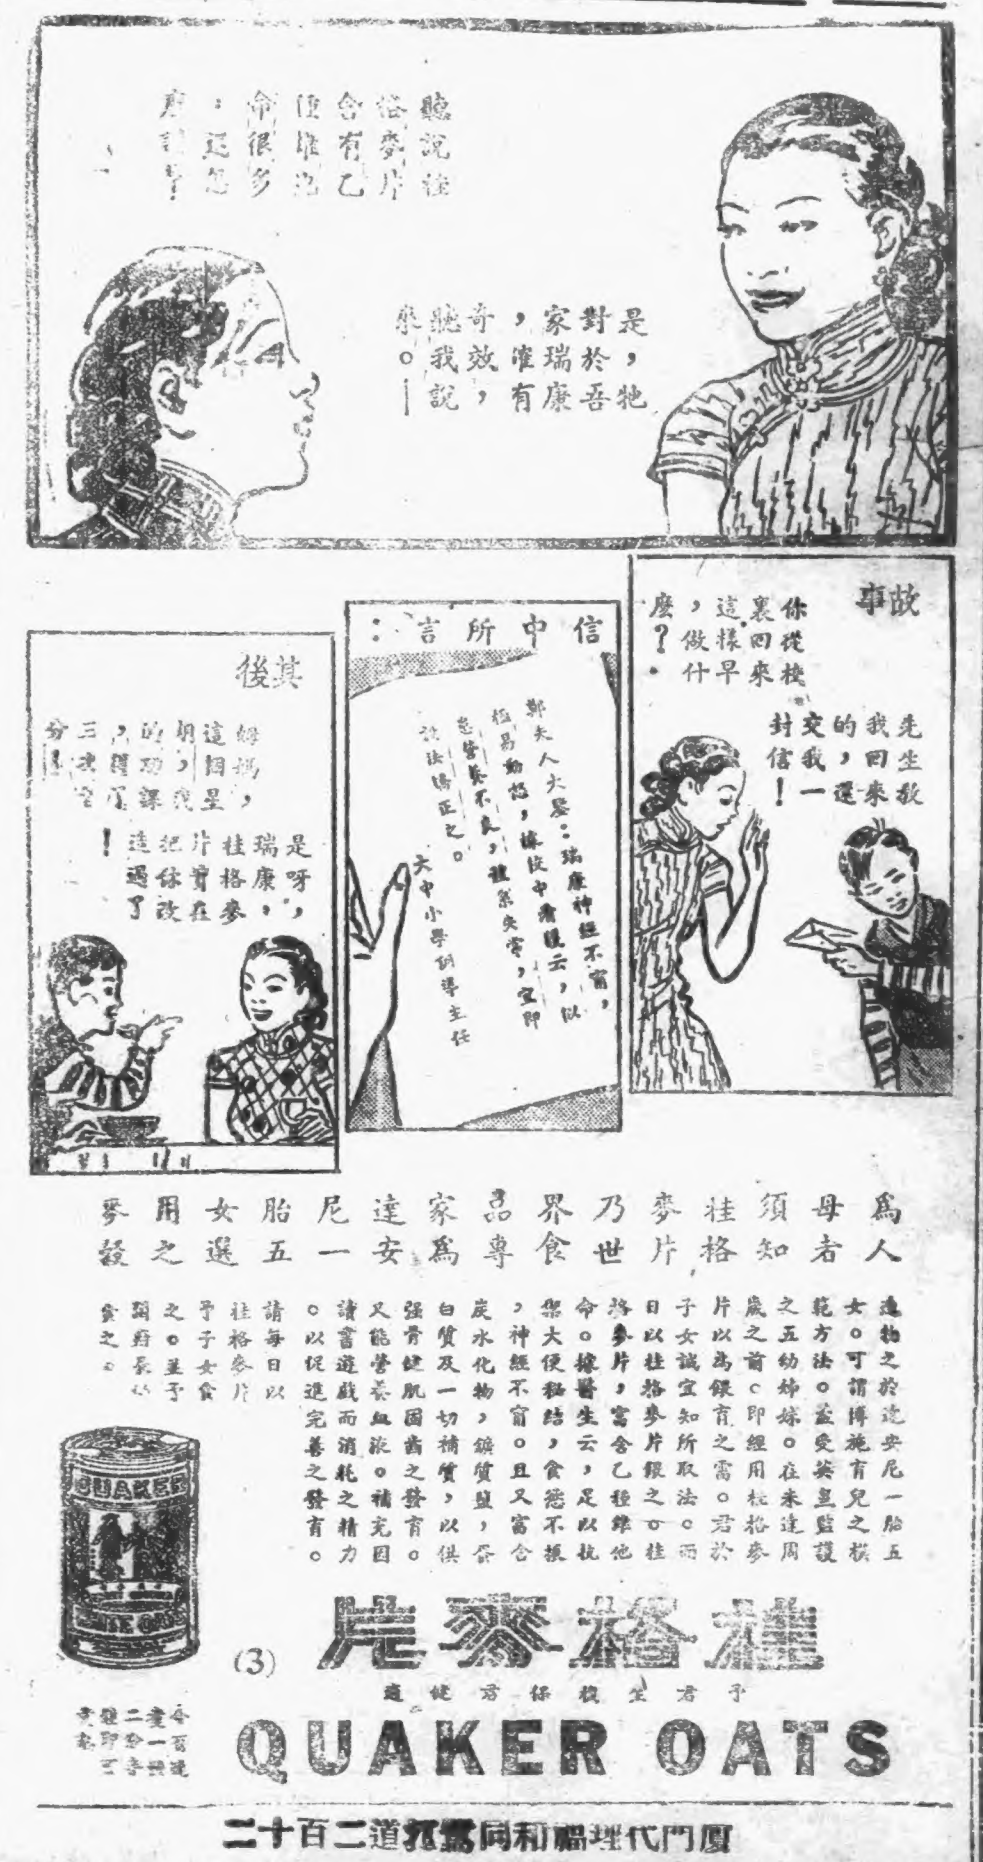 聽說桂
格麥片
含有乙
種維他
命很多
，這怎
麼講？
是，牠
對於吾
家瑞康
，確有
奇效，
聽我說
來。
故事
你從校
裏回來
這樣早
，做什
麼？
先生教
我回來
的，還
交我一
封信！
信中所言：
鄭夫人大鑒：瑞康神經不甯，
極易動怒，據校中看護云，似
患營養不良，體氣失常，宜即
設法矯正之。
大中小學訓導主任
其後
媽媽，
這個星
期，我
的功課
，得了
三次滿
分！
是呀，
瑞康，
桂格麥
片實在
把你改
造過了
！
為人
母者
須知
桂格
麥片
乃世
界食
品專
家為
達安
尼一
胎五
女選
用之
麥穀
造物之於達安尼一胎五
女。可謂博施育兒之模
範方法。蓋受英皇監護
之五幼姊妹。在未達周
歲之前。即經用桂格麥
片以為餵育之需。君於
子女誠宜知所取法。而
日以桂格麥片餵之。桂
格麥片，富含乙種維他
命。據醫生云，足以抗
禦大便秘結，食慾不振
，神經不甯。且又富含
炭水化物，鑛質鹽，蛋
白質及一切補質，以供
强骨健肌固齒之發育。
又能營養血液。補充因
讀書遊戲而消耗之精力
。以促進完善之發育。
請每日以
桂格麥片
予子女食
之。並予
闔府長幼
食之。
QUAKER
WHITE OATS
桂格麥片
(3)
予君生機保君健適
QUAKER OATS
廈門代理福和同鷺江道二百十二